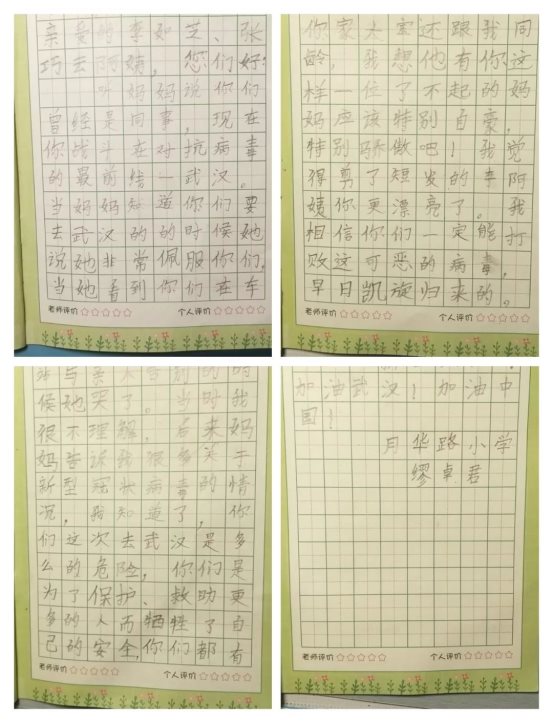 亲爱的李如芝、张
巧云阿姨,您们好:
听妈妈说你们
曾经是同事,现在
你战斗在对抗病毒
的最前线—武汉。
当妈妈知道你们要
去武汉的的时候她
说她非常佩服你们。
当她看到你们在车
老师评价☆☆☆☆☆ 个人评价☆☆☆☆☆
站与亲人告别的时
候她哭了。当时我
很不理解,后来妈
妈告诉我很多关于
新型冠状病毒的情
况,我知道了,你
们这次去武汉是多
么的危险,你们是
为了保护、救助更
多的人而牺牲了自
己的安全,你们都有
老师评价☆☆☆☆☆ 个人评价☆☆☆☆☆
你家大宝还跟我同
龄,我想他有你这
样一位了不起的妈
妈应该特别自豪,
特别骄傲吧!我觉
得剪了短发的李阿
姨你更漂亮了。我
相信你们一定能打
败这可恶的病毒,
早日凯旋归来的。
老师评价☆☆☆☆☆ 个人评价☆☆☆☆☆
加油武汉!加油中
国!
月华路小学
缪卓君
老师评价☆☆☆☆☆ 个人评价☆☆☆☆☆